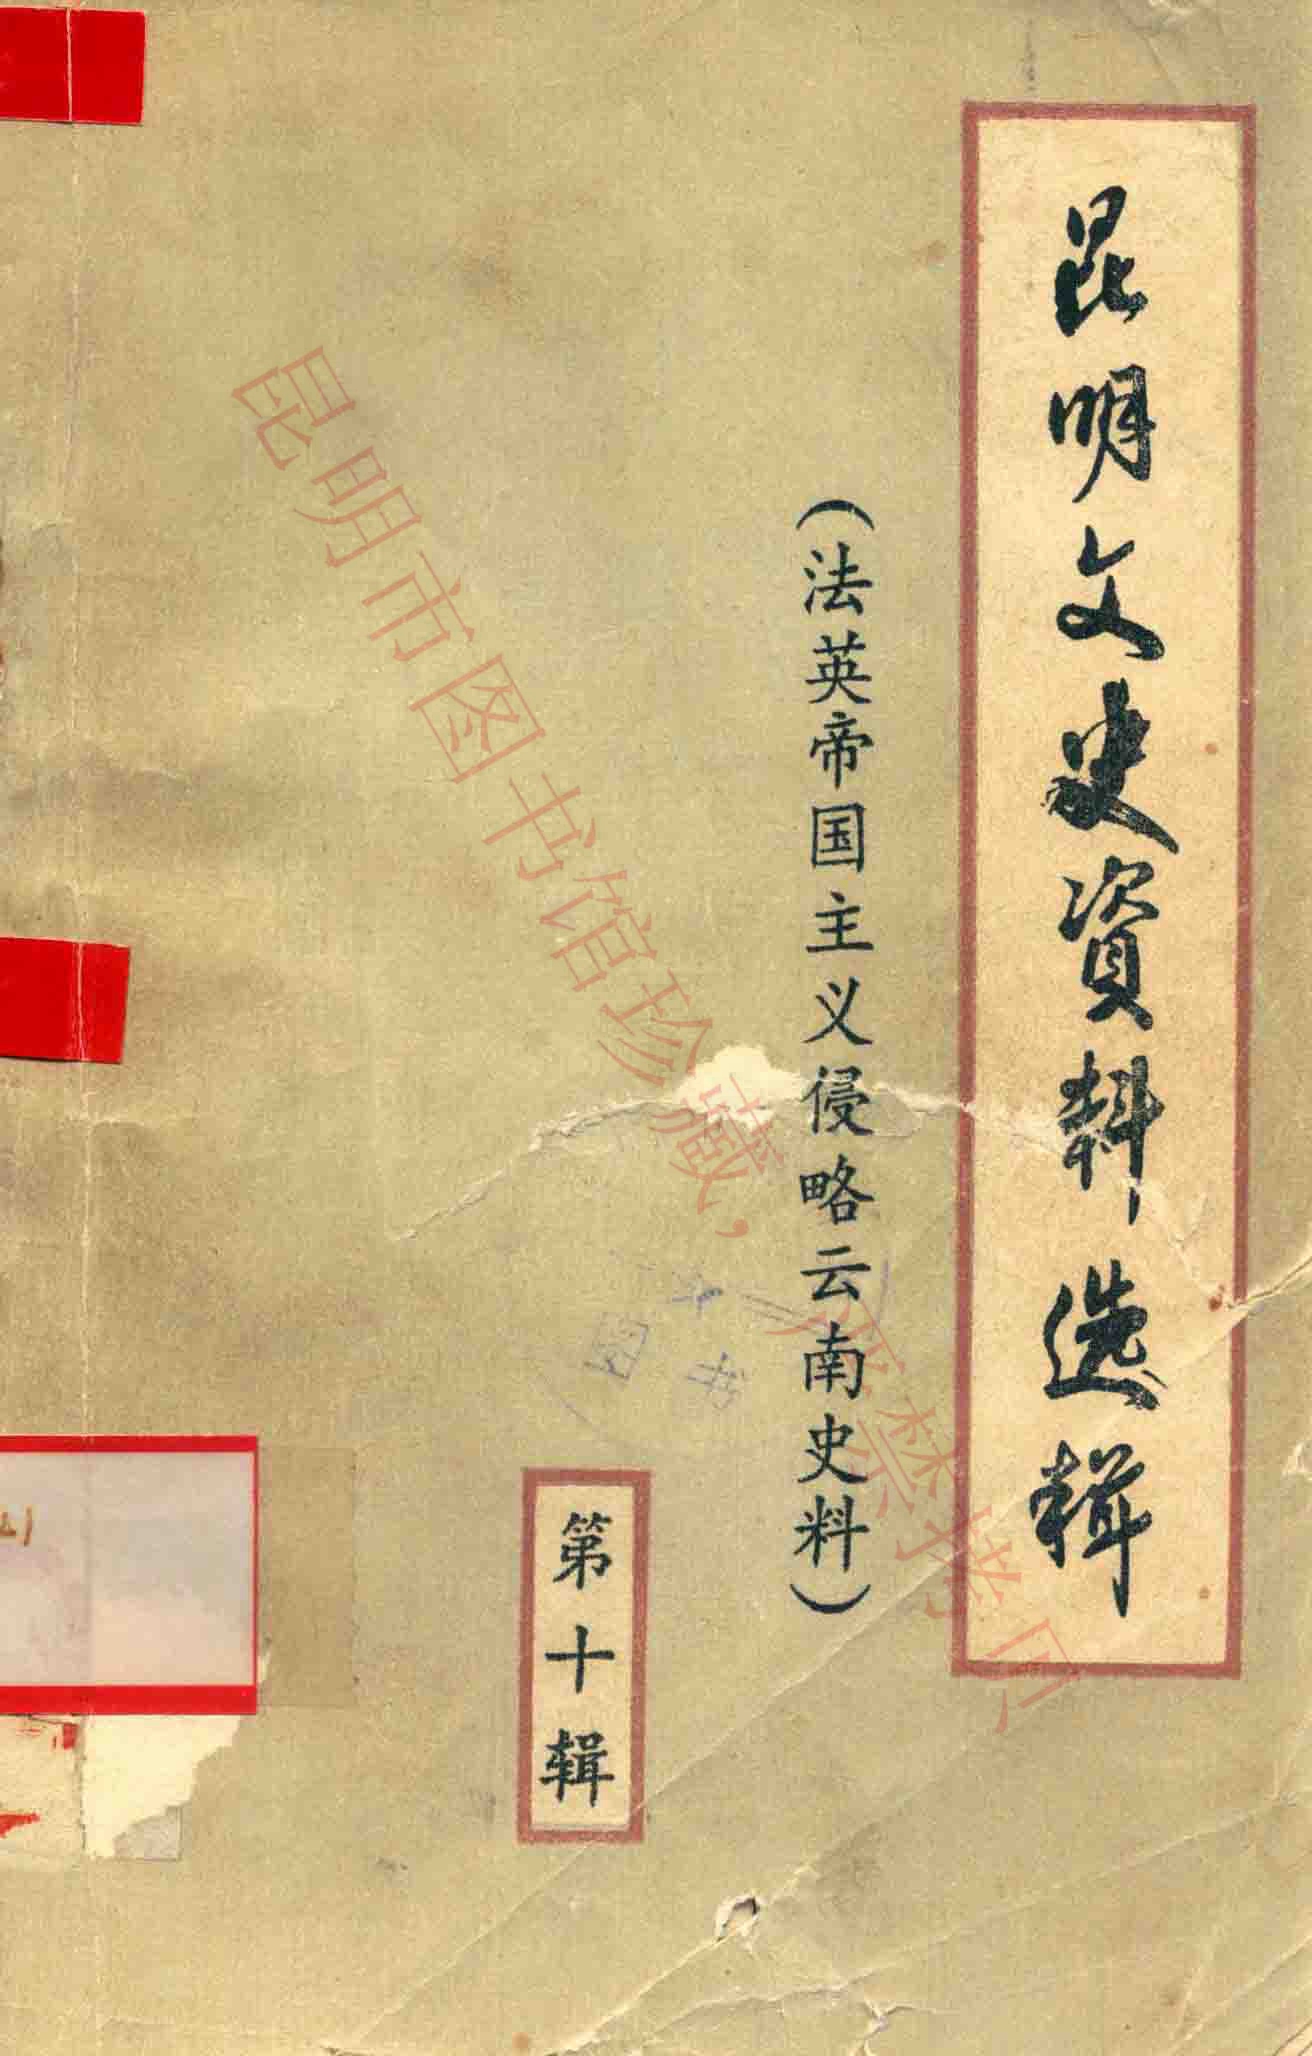 昆明文史資料选辑
(法英帝国主义侵略云南史料)
第十辑
昆明市图书馆珍藏,严禁拷贝
图书